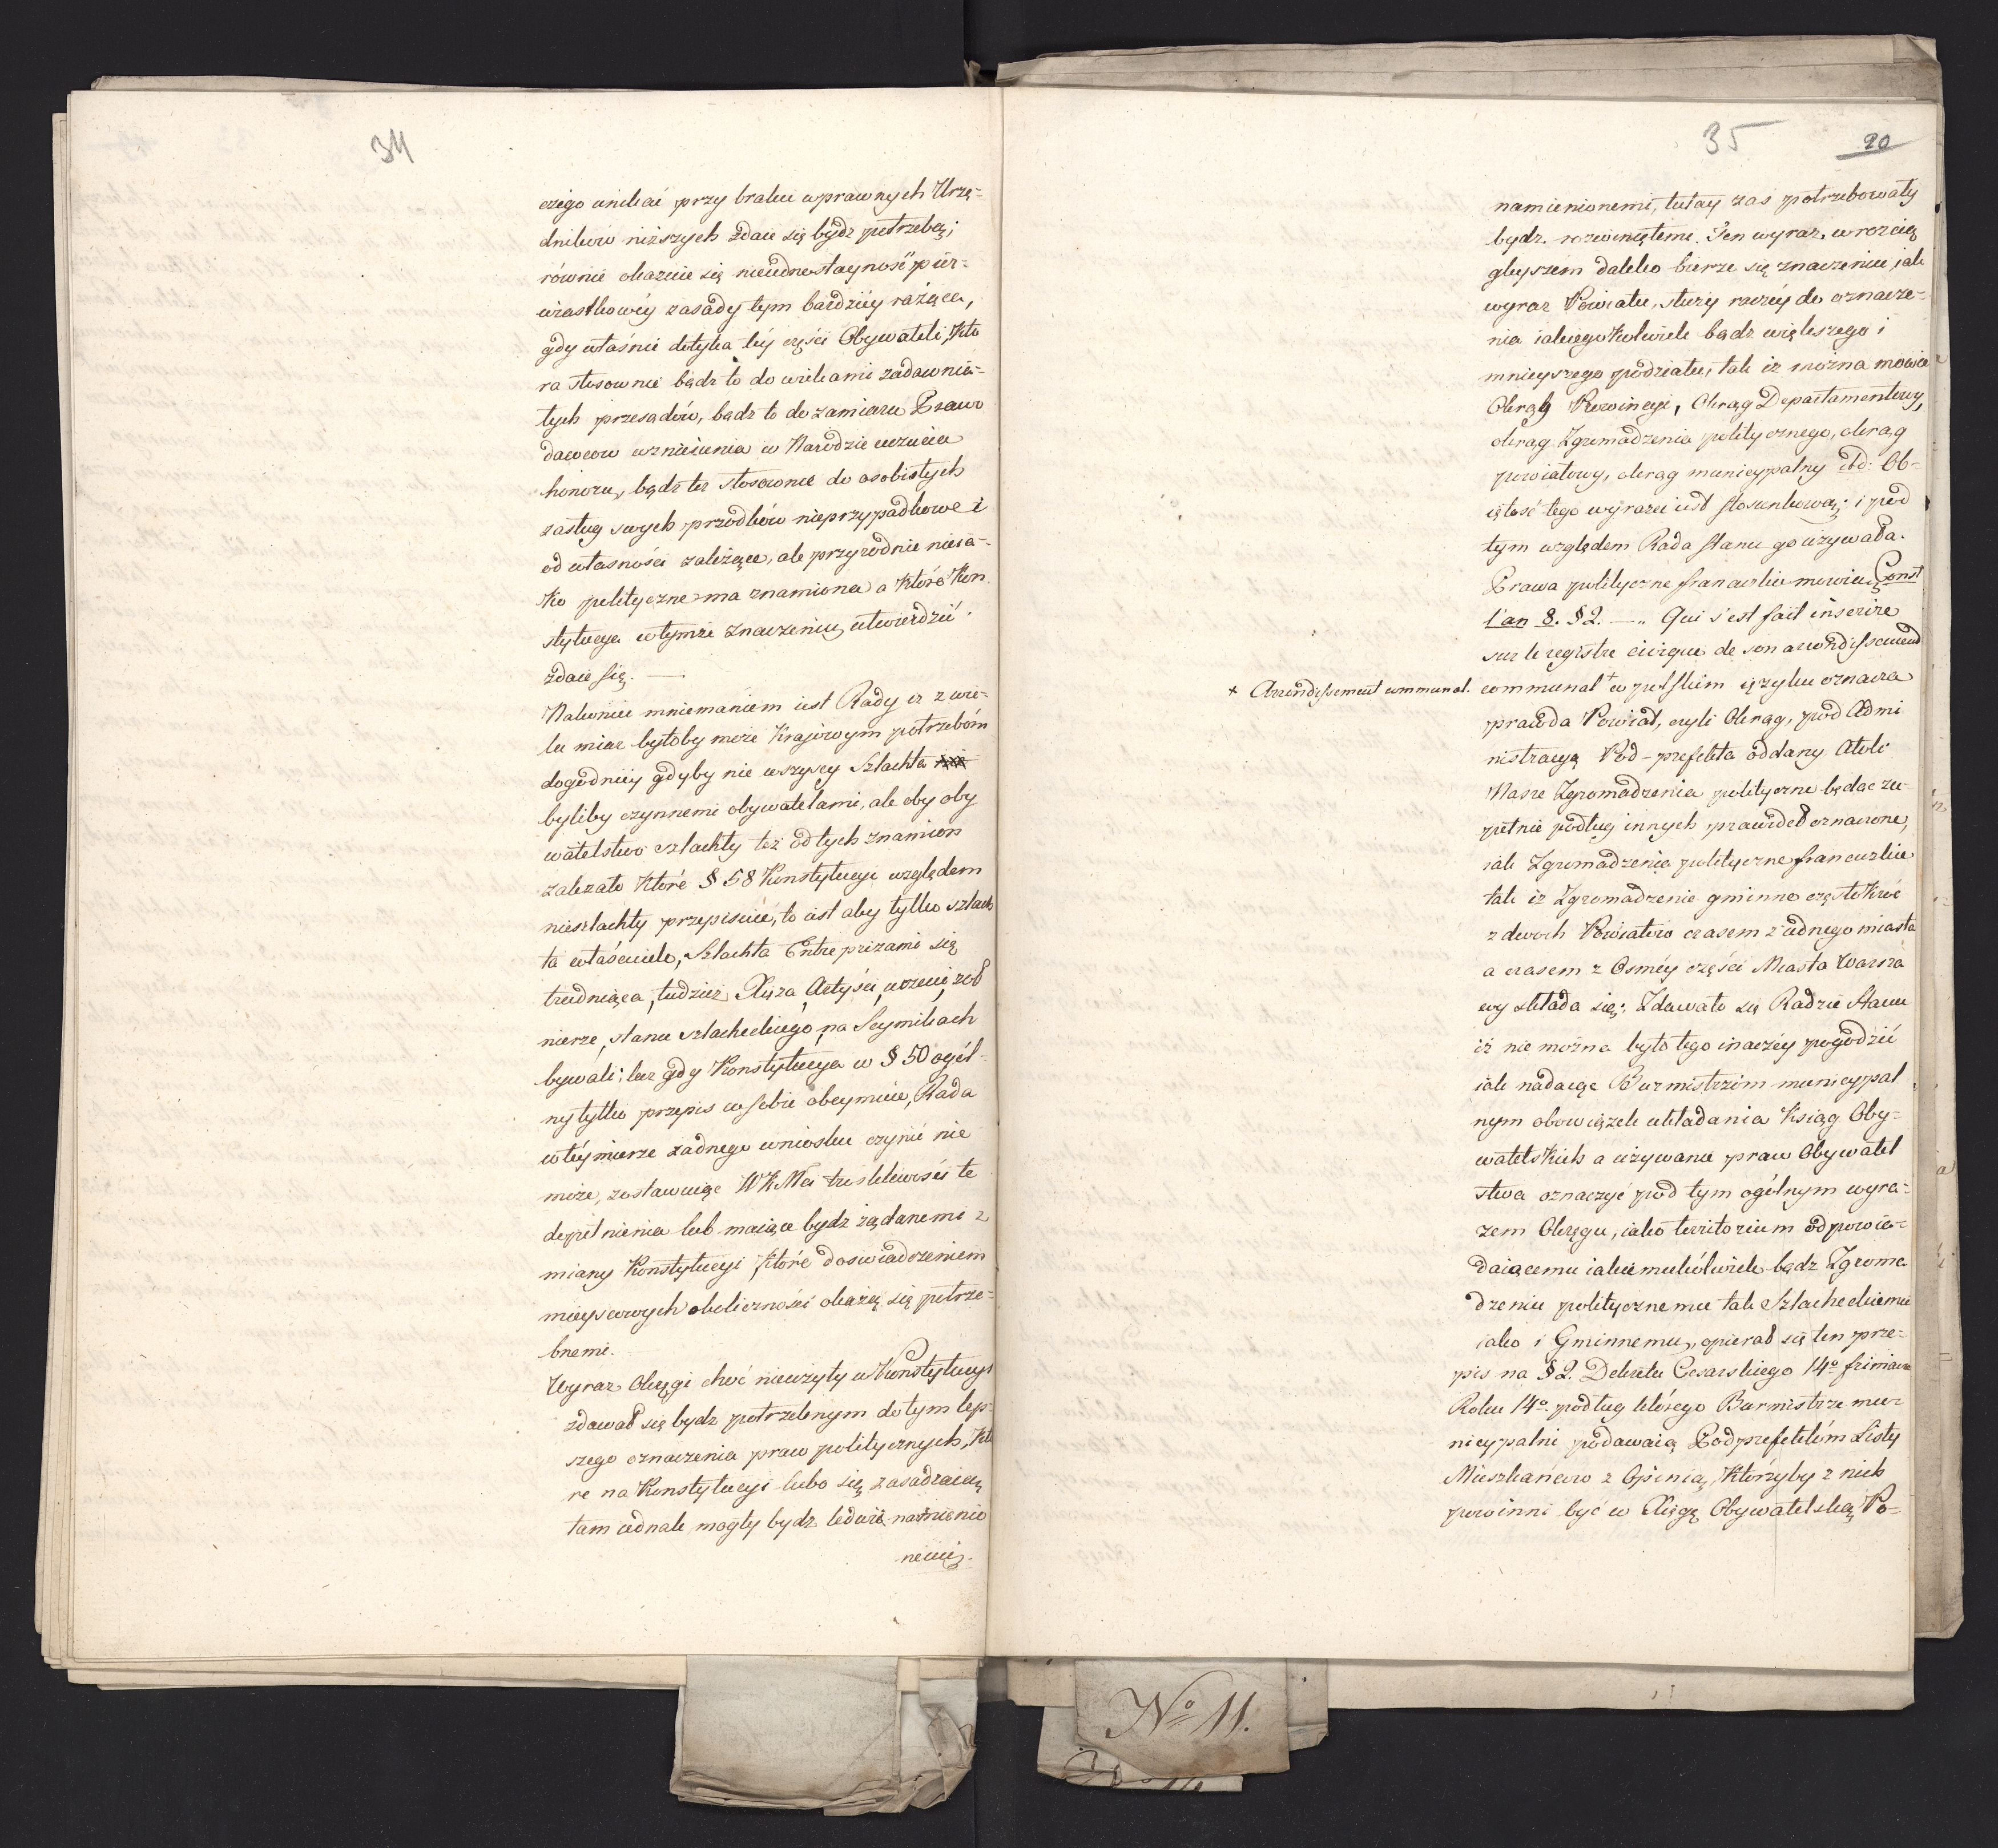 34
czego unikać przy braku wprawnych Urzę-
dników niższych zdaie się bydz potrzebą;
równie okazuie się nieiednostayność pier-
wiastkowéy zasady tym bardziéy rażąca,
gdy właśnie dotyka téy części Obywateli, Któ
ra stosownie bądz to do wiekami zadawnio-
tych przesądów, bądz to do zamiaru Prawo
dawców wzniesienia w Narodzie uczucia
honoru, bądz też stosownie do osobistych
zasług swych przodków nieprzypadkowe i
od własności zależące, ale przyrodnie nieia-
Ko polityczne ma znamiona a Które Kon
stytucya w tymże znaczeniu utwierdzić
zdaie się. —
Nakoniec mniemaniem iest Rady iż z wie-
lu miar byłoby może Krajowym potrzebóm
dogodniéy gdyby nie wszyscy Szlachta
byliby czynnemi obywatelami, ale aby oby
watelstwo szlachty też od tych znamion
zależało Które § 58 Konstytucyi względem
nieszlachty przepisuie, to iest aby tylko szlach
ta właściciele, Szlachta Entreprizami się
trudniąca, tudzież Xięża Artyści, uczeni, żoł
nierze, stanu szlacheckiego na Seymikach
bywali; lecz gdy Konstytucya w § 50 ogól-
ny tylko przepis w sobie obeymuie, Rada
w téy mierze żadnego wniosku czynić nie
może, zostawuiąc WKMci troskliwości te
dopełnienia lub maiące bydz żądanemi z
miany Konstytucyi Które doświadczeniem
mieyscowych okoliczności okażą się potrze-
bnemi.
Wyraz Okręgi choć nieużyty w Konstytucyi
zdawał się bydz potrzebnym do tym lep-
szego oznaczenia praw politycznych, Któ
re na Konstytucyi lubo się zasadzaią
tam iednak mogły bydz ledwie namienio
nemi,
35
20
namienionemi, tutay zas potrzebowały
bydz rozwinętemi. Ten wyraz w rozcią
gleyszém daleko bierze się znaczeniu, iak
wyraz Powiatu, służy raczéy do oznacze-
nia iakiegoKolwiek bądz większego i
mnieyszego podziału, tak iż można mówić
Okrąg Prowincyi, Okrąg Departamentowy,
okrąg Zgromadzenia politycznego, okrąg
powiatowy, okrąg municypalny itd: Ob-
iętość tego wyrazu iest stosunkową; i pod
tym względem Rada stanu go używała.
Prawa polityczne francuzkie mówią Const
l'an 8. § 2. —„ Qui s'est fait inscrire
sur le registre civique de son arrondissement
communal + w polskim ięzyku oznacza
+ Arrondissement communal.
prawda Powiat, czyli Okrąg, pod Admi
nistracyą Pod-prefekta oddany. Atoli
Nasze Zgromadzenia polityczne będąc zu-
pełnie podług innych prawideł oznaczone,
iak Zgromadzenia polityczne francuzkie
tak iż Zgromadzenie gminne częstokroć
z dwóch Powiatów czasem z iednego miasta
a czasem z Osméy części Miasta Warsza
wy składa się; Zdawało się Radzie Stanu
iż nie można było tego inaczéy pogodzić
iak nadaiąc Burmistrzom municypal
nym obowiązek układania Ksiąg Oby-
watelskich a używanie praw Obywatel
stwa oznaczyć pod tym ogólnym wyra-
zem Okręgu, iako territorium odpowia-
daiącemu iakiemukolwiek bądz Zgroma
dzeniu politycznemu tak Szlacheckiemu
iako i Gminnemu, opierał się ten prze-
pis na § 2. Dekretu Cesarskiego 14º frimaire
Roku 14º podług którego Burmistrze mu-
nicypalni podawaią Podprefektóm Listy
Mieszkańców z Opinią, Którzyby z nich
powinni być w Xięgę Obywatelską Po-
Nº 11.